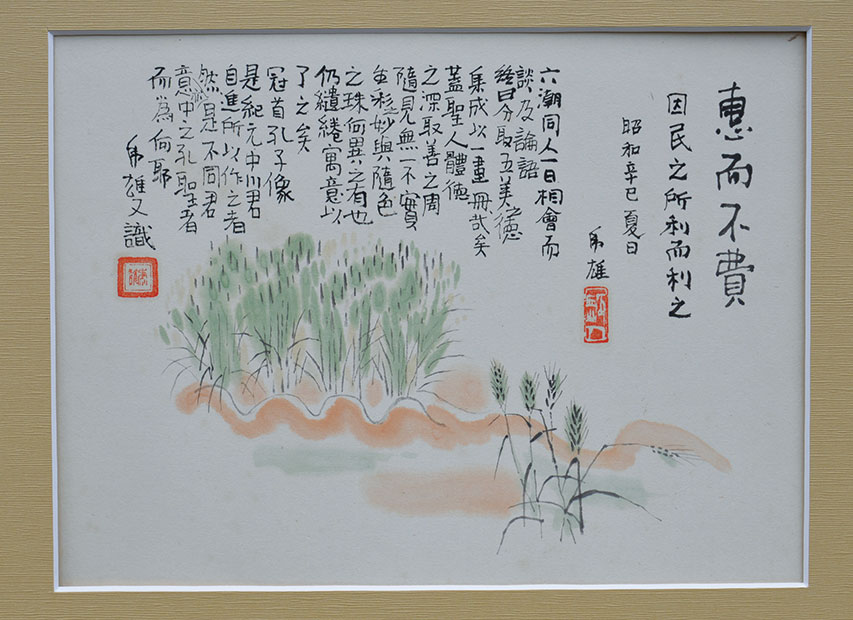 惠而不費
因民之所利而利之
昭和辛巳夏日
虎雄
六潮同人一日相會而
談及論語
終日分取五美之德
集成以一畫冊哉矣
蓋聖人體德
之深取善之周
隨見無一不寶
生彩妙與隨色
之珠何異之有也
仍繾綣寓意以
了之矣
冠首孔子像
是紀元中川君
自進所以作之者
然是不同君
意中之孔聖者
而為何耶
虎雄又識